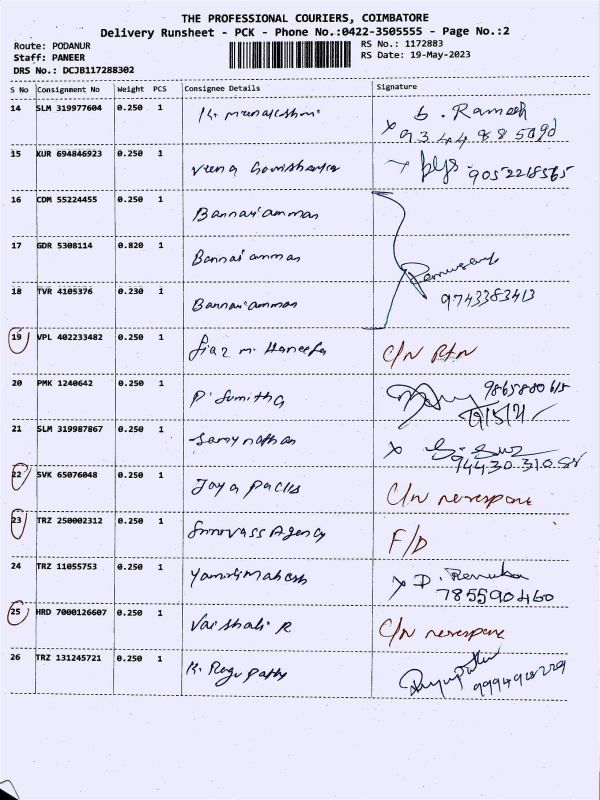 THE PROFESSIONAL COURIERS, COIMBATORE
Delivery Runsheet - PCK - Phone No.:0422-3505555 - Page No.:2
Route: PODANUR RS No.: 1172883
Staff: PANEER RS Date: 19-May-2023
DRS No.: DCJB117288302
S No Consignment No Weight PCS Consignee Details Signature
14 SLM 319977604 0.250 1 K. b. Ramesh
x
15 KUR 694846923 0.250 1 Veena 9052218565
16 CDM 55224455 0.250 1 Bannariamman
17 GDR 5308114 0.820 1 Bannariamman
9743383413
18 TVR 4105376 0.230 1 Bannariamman
19 VPL 402233482 0.250 1 C/N RTN
20 PMK 1240642 0.250 1 P. Sumitha 9865880615
21 SLM 319987867 0.250 1 x
22 SVK 65076048 0.250 1 Jaya C/N
23 TRZ 250002312 0.250 1 Srinivass Agency F/D
24 TRZ 11055753 0.250 1 x D. Renuka
785590460
25 HRD 7000126607 0.250 1 Vaishali R C/N
26 TRZ 131245721 0.250 1 K. Ragupathy